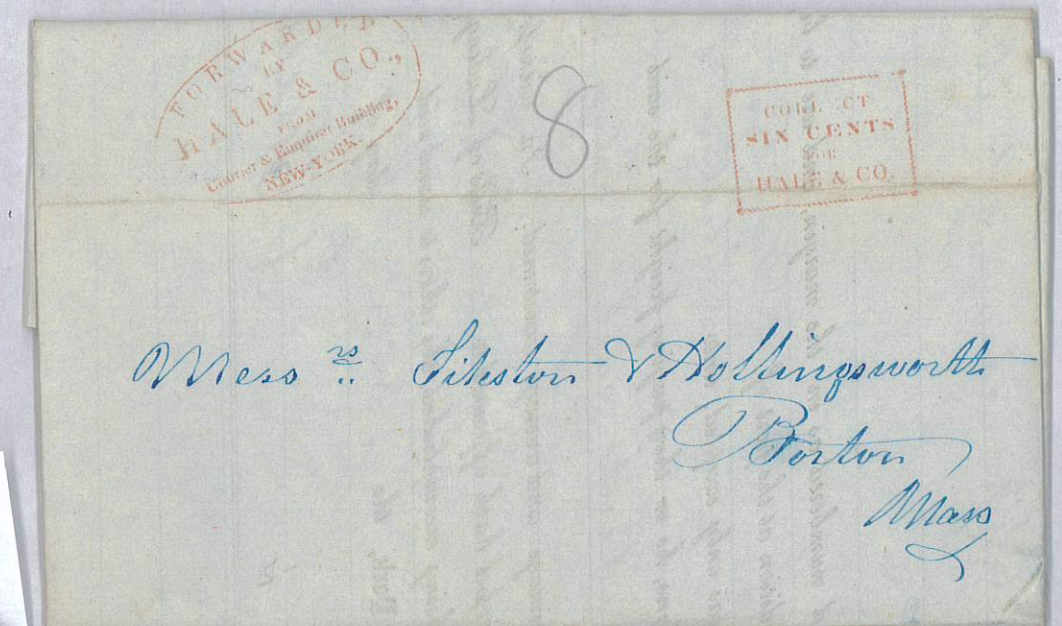 FORWARDED
BY
HALE & CO.,
FROM
Courier & Enquirer Building,
NEW-YORK.
8
COLLECT
SIX CENTS
FOR
HALE & CO.
Mess rs Tileston & Hollingsworth
Boston
Mass